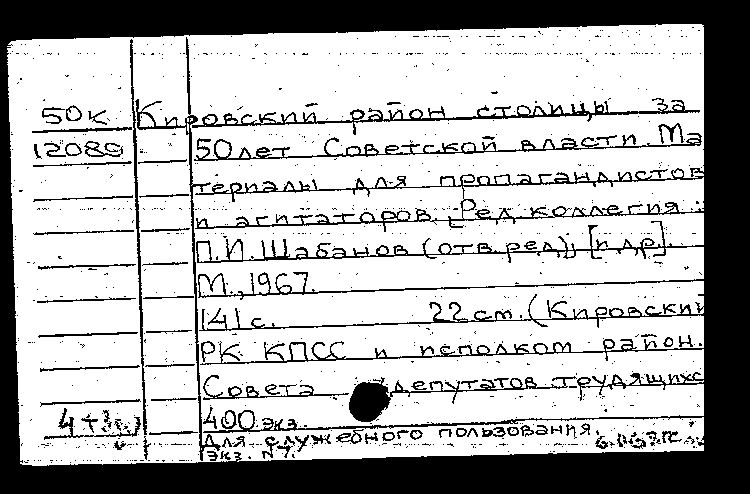 50к Кировский район столицы за
12089 50 лет Советской власти. Ма
териалы для пропагандистов
и агитаторов. [Ред. коллегия:
П.И. Шабанов (отв. ред), [и др].
М., 1967.
141 с. 22 см. (Кировский
РК КПСС и исполком район.
Совета депутатов трудящихс
400 экз.
Для служебного пользования.
Экз. №7.